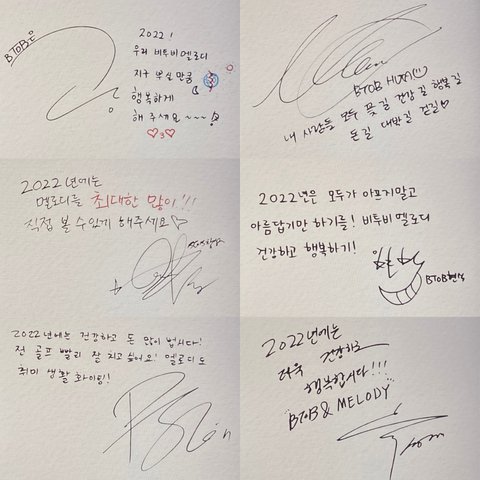 BTOB은
2022!
우리 비투비 멜로디
지구 뿌실만큼
행복하게
해 주세요~~~!
BTOB HUTA
내 사람들 모두 꽃길 건강길 행복길
돈길 대박길 걷길♡
2022년에는
멜로디를 최대한 많이!!!
직접 볼 수 있게 해주세요♡
2022년은 모두가 아프지말고
아름답기만 하기를! 비투비 멜로디
건강하고 행복하기!
BTOB현식
2022년에는 건강하고 돈 많이 법시다!
전 골프 빨리 잘 치고 싶어요! 멜로디도
취미 생활 화이팅!
2022년에는
더욱 건강하고
행복합시다!!!
BTOB & MELODY